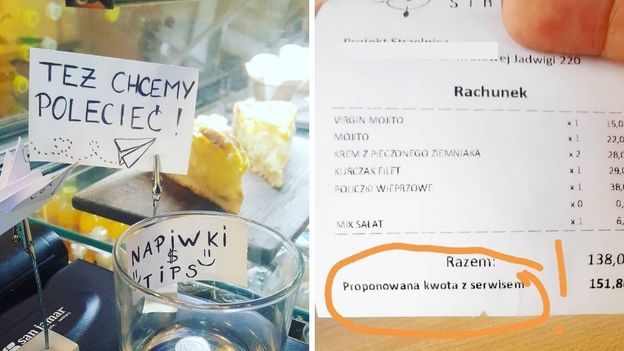 TEŻ CHCEMY
POLECIEĆ!
NAPIWKI
$
TIPS
san jamar
STR
Projekt Strzelnica
Jadwigi 220
Rachunek
VIRGIN MOJITO x 1 15,0
MOJITO x 1 22,0
KREM Z PIECZONEGO ZIEMNIAKA x 2 28,0
KURCZAK FILET x 1 29,0
POLICZKI WIEPRZOWE x 1 38,0
x 0 0,
MIX SAŁAT x 1 6,
Razem: 138,0
Proponowana kwota z serwisem 151,8